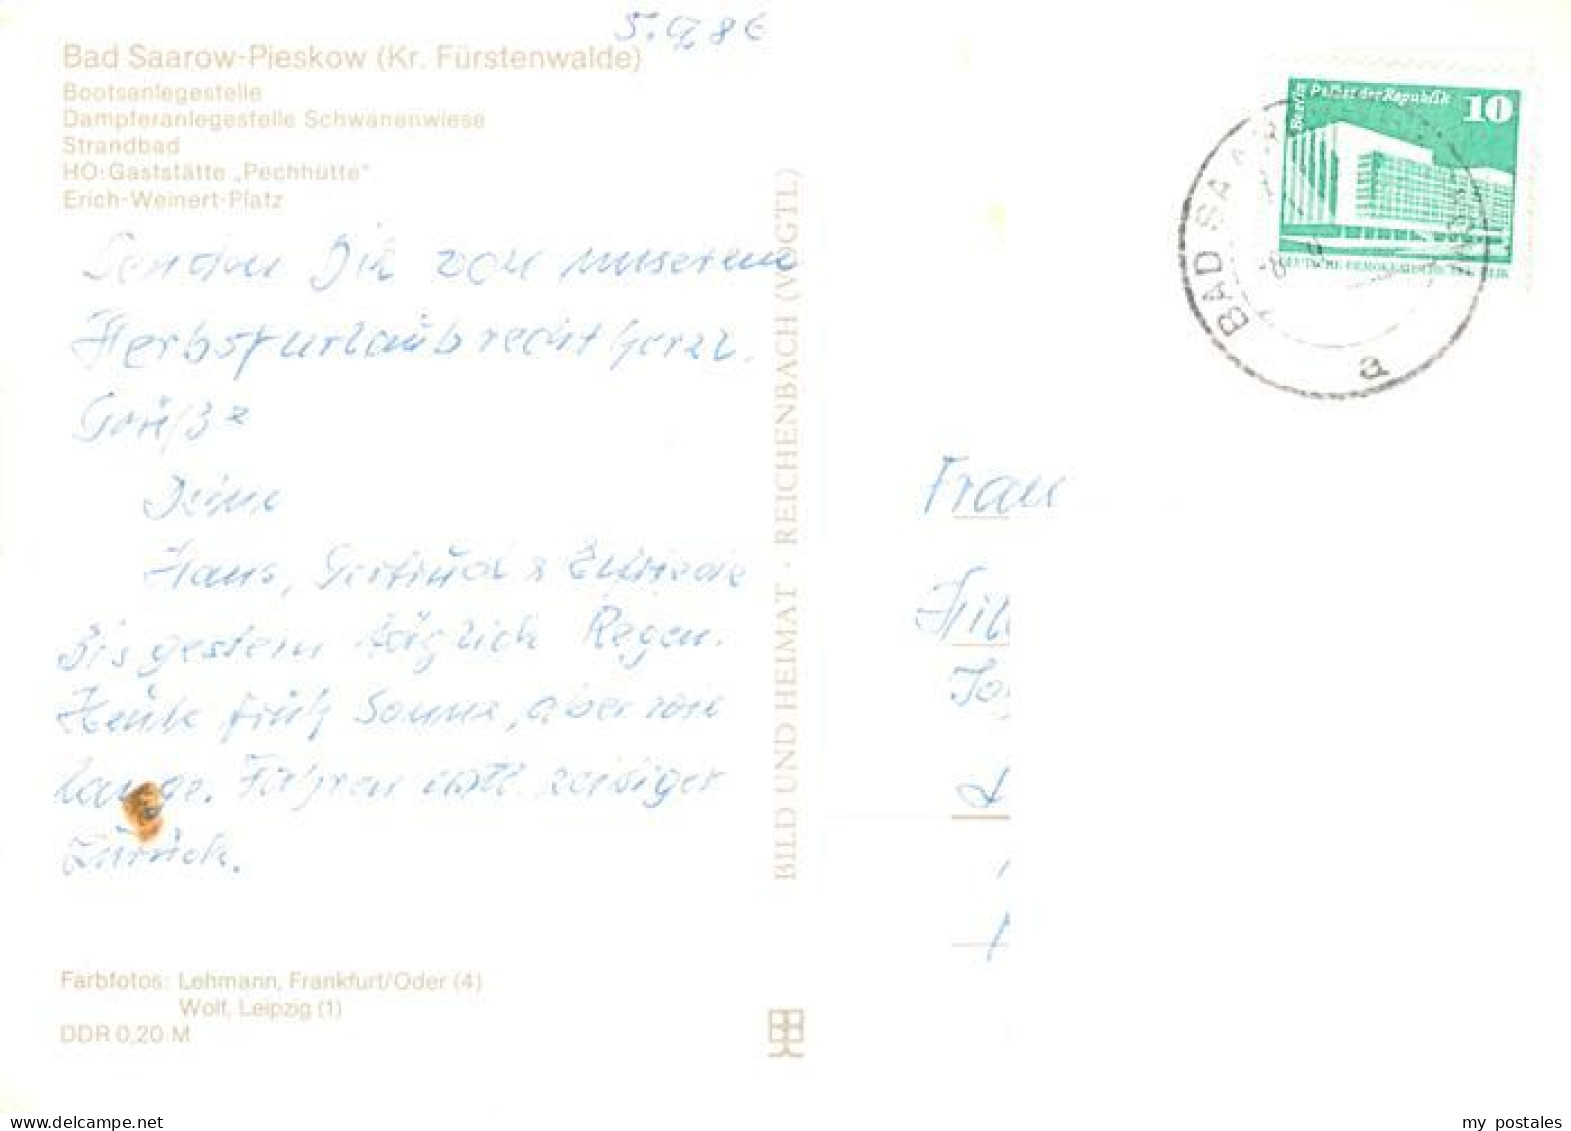 5.9.86
Bad Saarow-Pieskow (Kr. Fürstenwalde)
Bootsanlegestelle
Dampferanlegestelle Schwanenwiese
Strandbad
HO-Gaststätte „Pechhütte"
Erich-Weinert-Platz
Senden Dir von unserem
Herbsturlaub recht herzl.
Grüße
Deine
Hans, Gertrud & Elfriede
Bis gestern täglich Regen.
Heute früh Sonne, aber wie
lange. Fahren evtl. zeitiger
zurück.
Farbfotos: Lehmann, Frankfurt/Oder (4)
Wolf, Leipzig (1)
DDR 0,20 M
BILD UND HEIMAT · REICHENBACH (VOGTL)
Berlin Palast der Republik 10
DEUTSCHE DEMOKRATISCHE REPUBLIK
BAD SAAROW
a
Frau
my postales